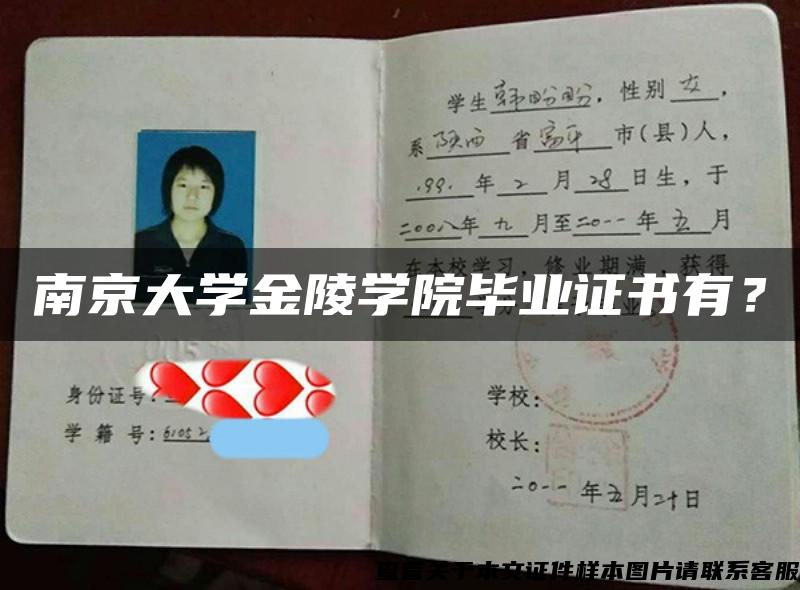 学生韩盼盼，性别女，
系陕西省富平市(县)人，
1991年2月28日生，于
二00八年九月至二0一一年五月
在本校学习，修业期满，获得
南京大学金陵学院毕业证书有？
身份证号：
学 籍 号：6105
学校：
校长：
二0一一年五月二十日
查看关于本文证件样本图片请联系客服